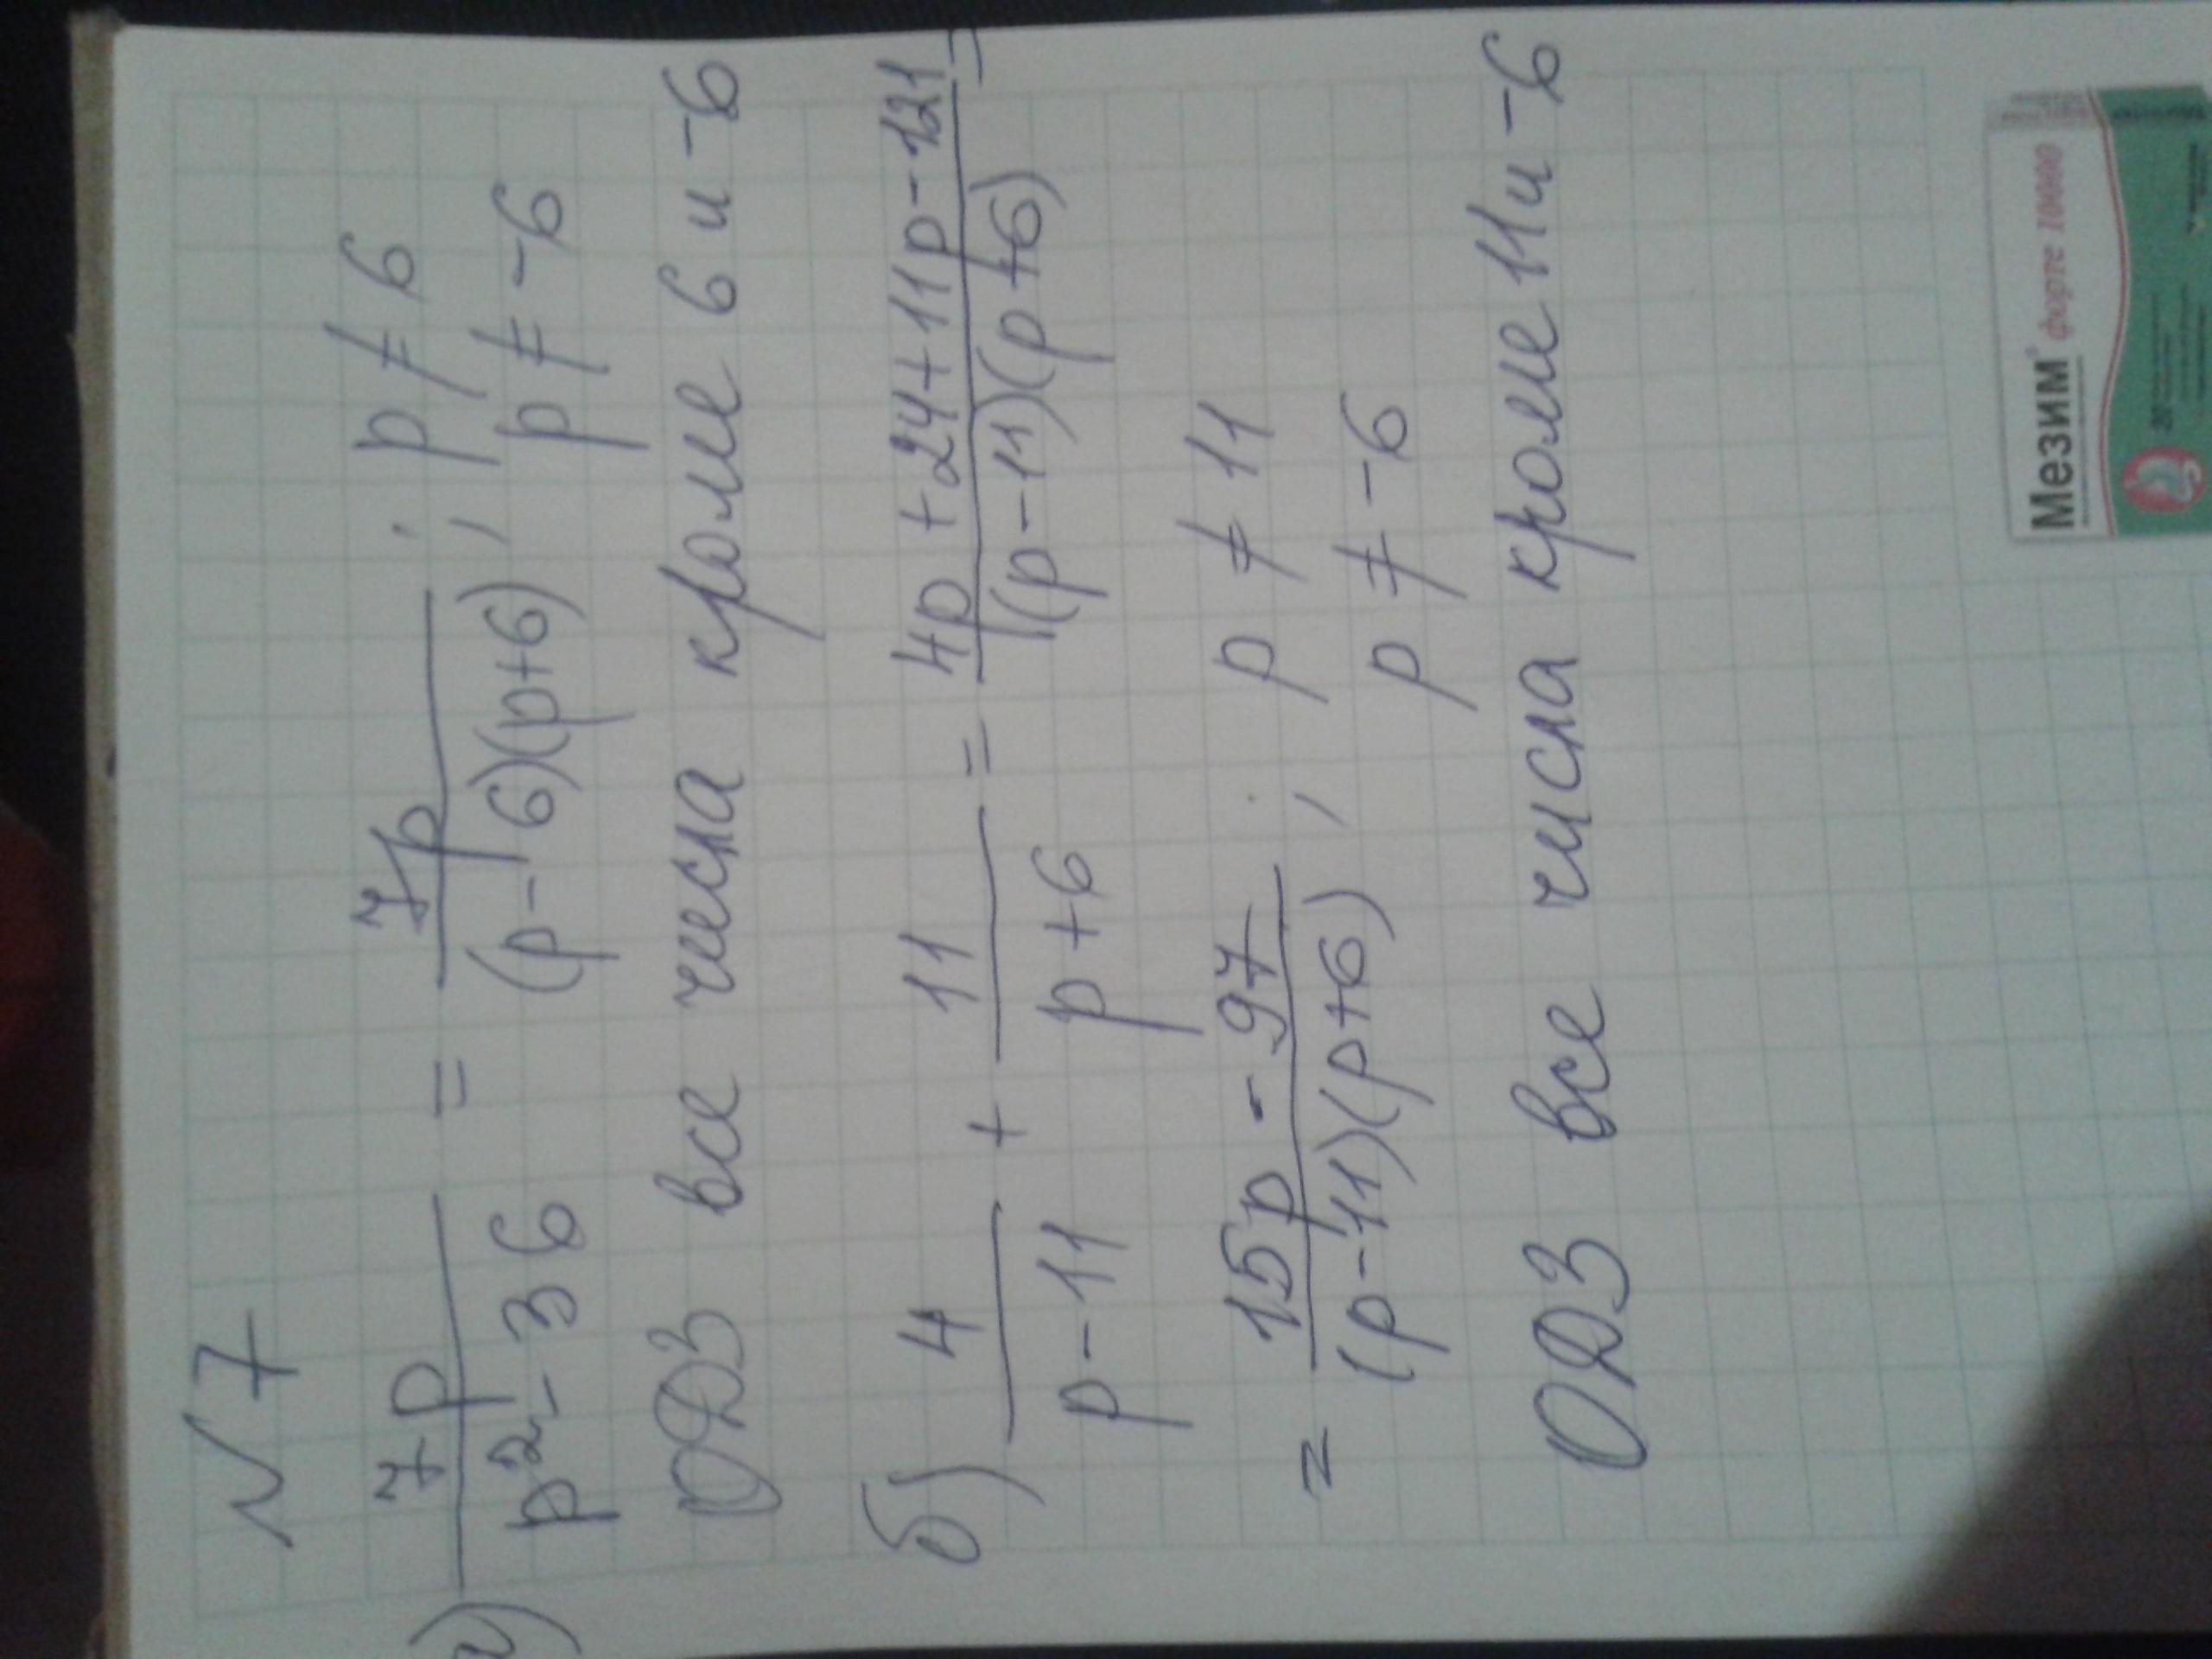 №7
а) 7p/(p²-36) = 7p/((p-6)(p+6)) ; p ≠ 6
p ≠ -6
ОДЗ все числа кроме 6 и -6
б) 4/(p-11) + 11/(p+6) = (4p+24+11p-121)/((p-11)(p+6)) =
= (15p-97)/((p-11)(p+6)) ; p ≠ 11
p ≠ -6
ОДЗ все числа кроме 11 и -6
Мезим® форте 10000
20